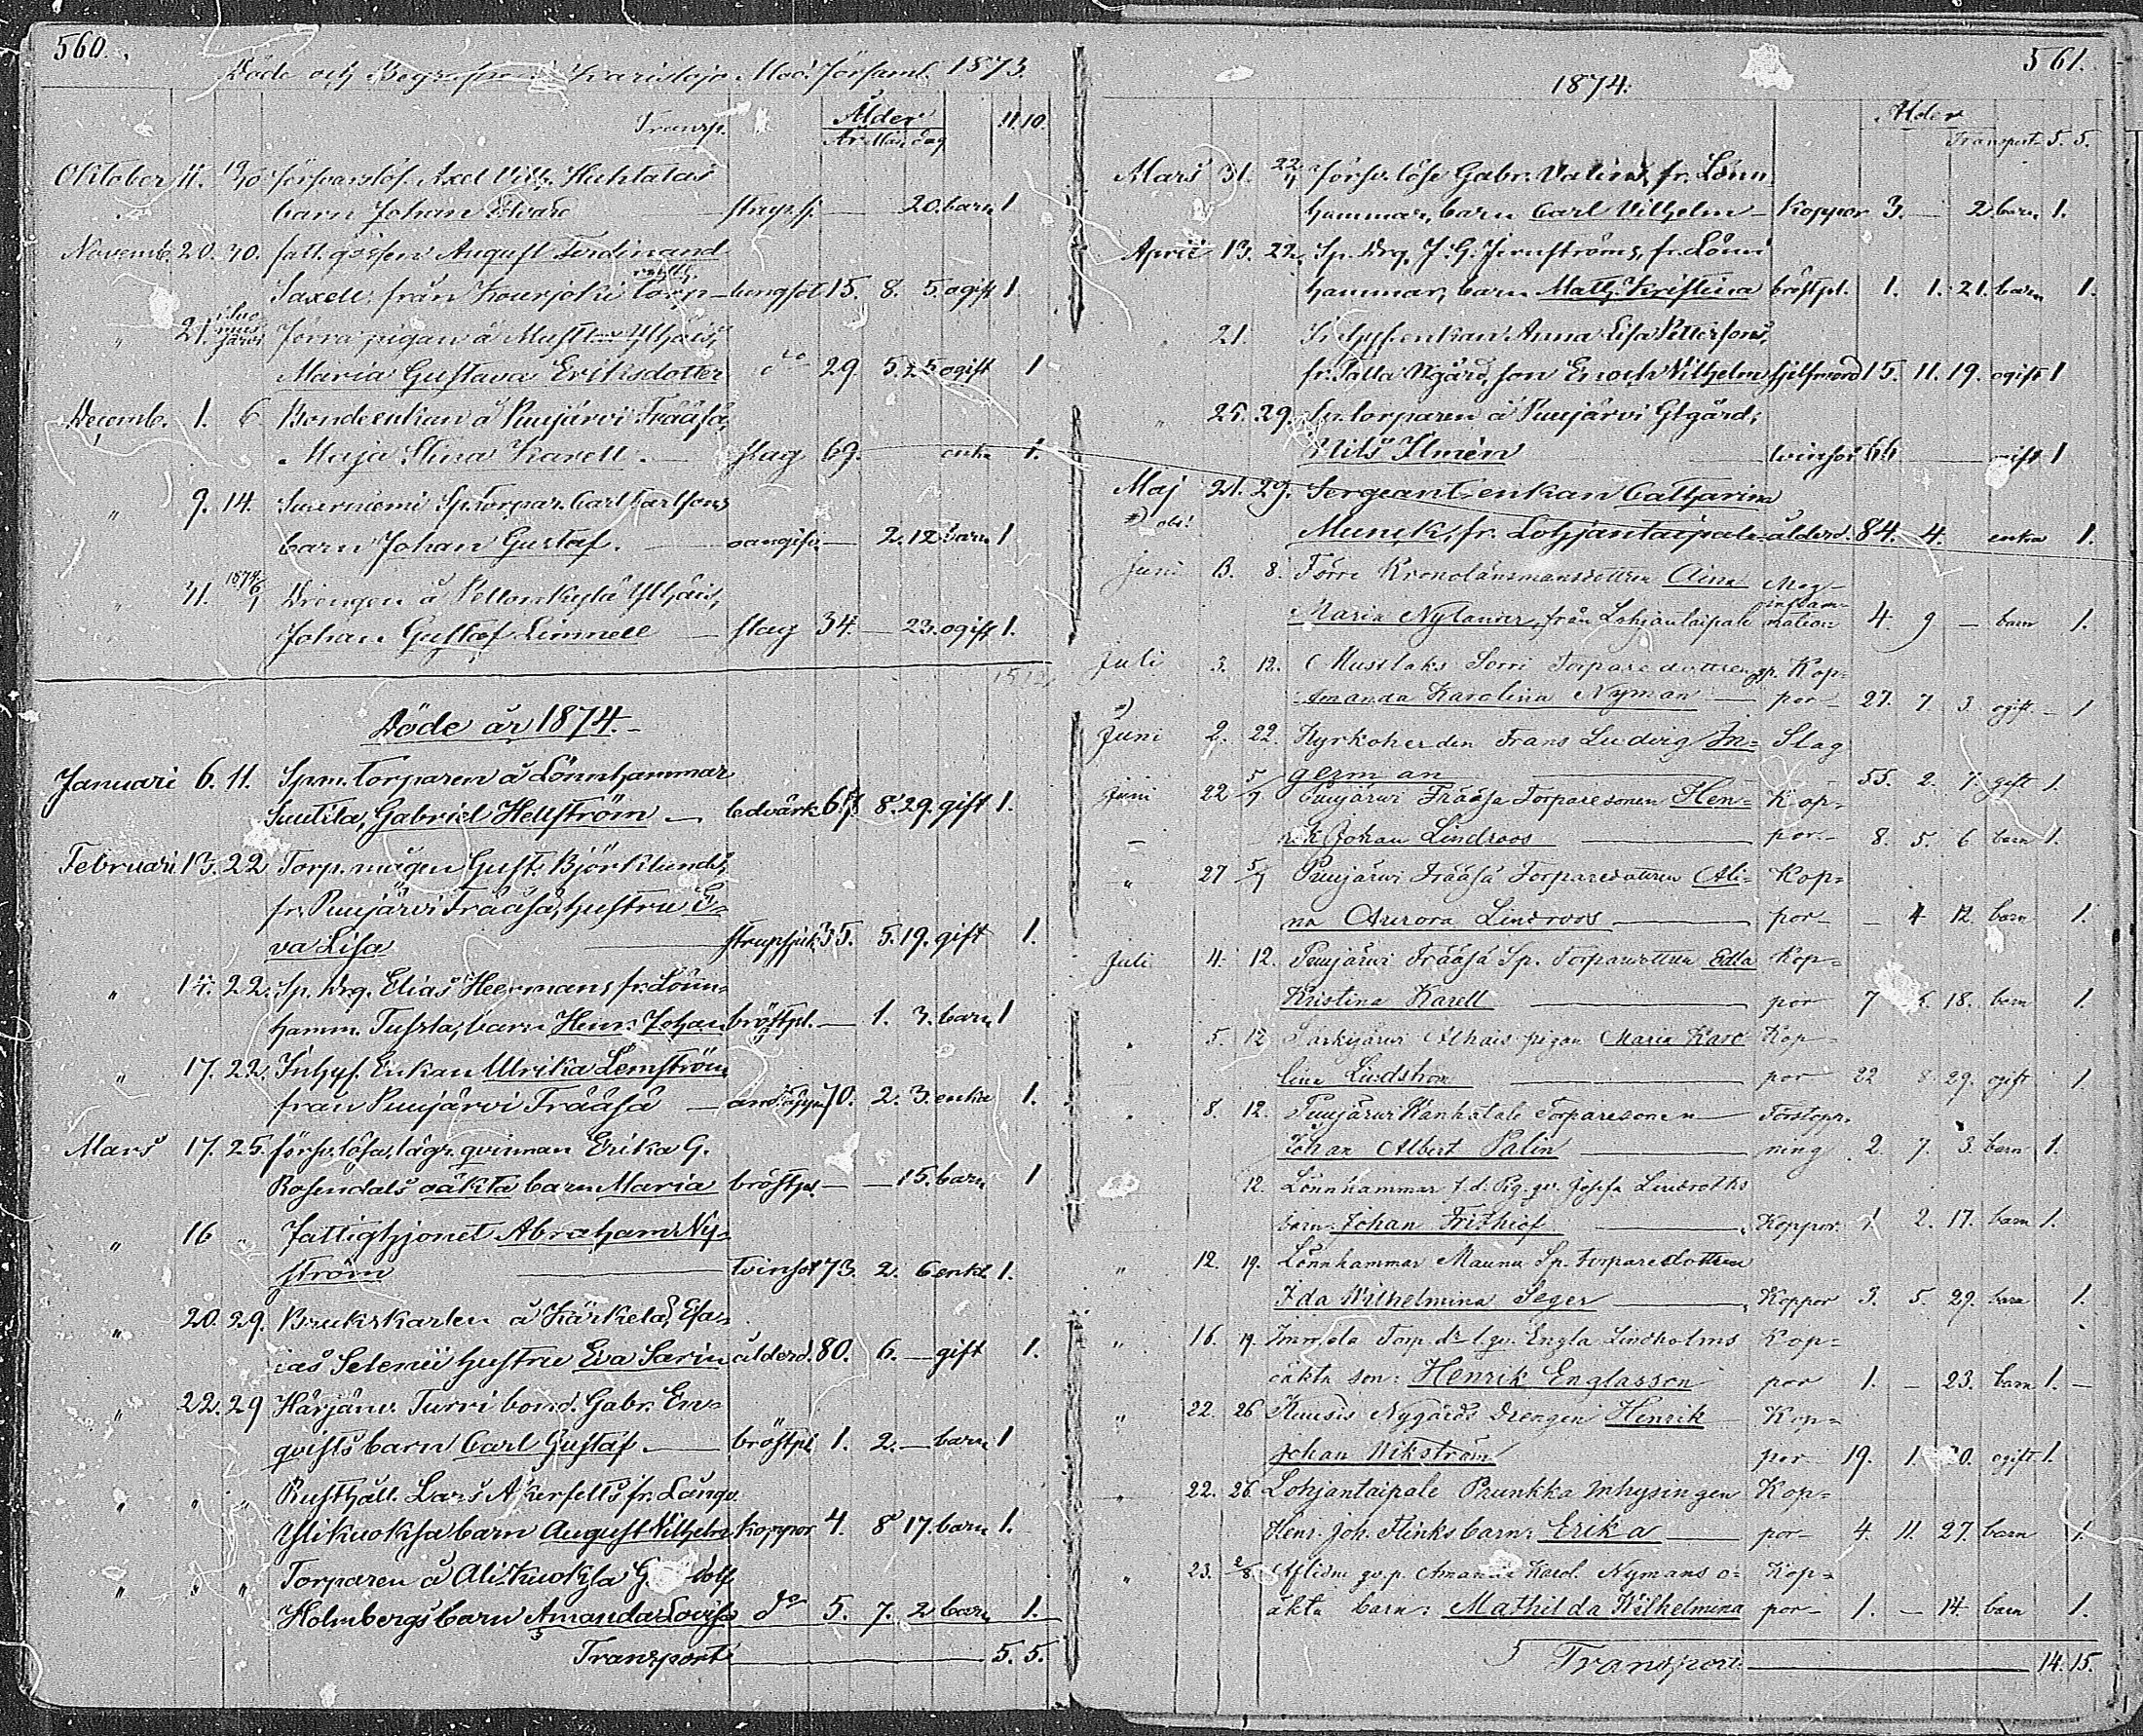 560.
Döde och Begrafne i Karislojo Mod. församl. 1873.
Transp. Ålder 11. 10.
År Mån. dag
Oktober 11. 19/10 försvarslös. Axel Vilh. Huhtalas
barn Johan Edvard — 20. barn 1
Novemb. 20. 30. fatt. gossen August Ferdinand
Saxell från Kourjoki torp — lungsot 15. 8. 5. ogift 1
" 21. förra pigan å Yllhäis,
Maria Gustava Eriksdotter do 29. 5. 25 ogift 1
Decemb. 1. 6 Bondeenkan å Puujärvi Frääsä,
Maja Stina Karell. — slag 69. enka 1.
" 9. 14. Suurniemi Sp. torpar. Carl Carlsons
barn Johan Gustaf. — oangifv. — 2. 12 barn 1
" 31. 1874 6/1 Drengen å Pellonkylä Yllhäis,
Johan Gustaf Limnell — slag 34. — 23. ogift 1.
Döde år 1874.
Januari 6. 11. Spm. torparen å Lönnhammar
Suutila, Gabriel Hellström — 8. 29. gift 1.
Februari 13. 22 Torp. mågen Gust. Björklunds,
fr. Puujärvi Frääsä, hustru E-
va Lisa — strupsjuk. 35. 5. 19. gift 1.
" 14. 22. Sp. drg. Elias Heermans fr. Lönn-
hamm. barn Henr. Johan bröstpl. — 1. 3. barn 1
" 17. 22. Inhys. Enkan Ulrika Lemström
från Puujärvi Frääsä — 70. 2. 3. enka 1.
Mars 17. 25. försv. lösa, lägr. qvinnan Erika G.
Rosendals oäkta barn Maria bröstpl. — — 15. barn 1
" 16 " Fattighjonet Abraham Ny-
ström — tvinsot 73. 2. 6 enkl. 1.
" 20. 29. Brukskarlen å Kärkelä, Esa-
ias Selenii hustru Eva Sarin ålderd. 80. 6. — gift 1.
" 22. 29 Härjänv. Turri bond. Gabr. En-
qvists barn Carl Gustaf. — bröstpl 1. 2. — barn 1
" " " Rusthåll. Lars Åkerfelts fr.
Ylikuoksa barn August Vilhelm koppor 4. 8 17. barn 1.
" " " Torparen å Alikuoksa
Holmbergs barn Amanda Lovisa do 5. 7. 2 barn 1.
Transport — 5. 5.
561.
1874.
Ålder
Transport 5. 5.
Mars 31. 22/4 försv. löse Gabr. Valins, fr. Lönn-
hammar, barn Carl Vilhelm — koppor 3. — 2 barn 1.
April 13. 22. Sp. drg. J. G. Jernströms, fr. Lönn-
hammar, barn Math. Kristina bröstpl. 1. 1. 21. barn 1.
21. Inhys. enkan Anna Lisa Pettersons,
fr. Nygård, son Enoch Vilhelm sjelfmord 15. 11. 19. ogift 1
" 25. 29. Sp. torparen å Puujärvi Glgård,
Nils Ilmén — tvinsot 64 — gift 1
Maj 21. 29. Sergeant-enkan Catharina
Munck, fr. Lohjantaipale ålderd. 84. 4. enka 1.
Juni 3. 8. Förre Kronolänsmansdottren Aina Mag-
Maria Nylander, från Lohjantaipale inflammation 4. 9 — barn 1.
Juli 3. 12. Mustlaks Sorri Torparedottren Kop-
Amanda Karolina Nyman — por 27. 7 3. ogift — 1
Juni 2. 22. Kyrkoherden Frans Ludvig In- Slag
german — 55. 2. 7. gift 1.
Juni 22 5/7 Puujärvi Frääsä Torparesonen Hen- Kop-
rik Johan Lindroos — por — 8. 5. 6 barn 1.
" 27 5/7 Puujärvi Frääsä Torparedottren Ali- Kop-
na Aurora Lindroos — por — 4 12. barn 1.
Juli 4. 12. Puujärvi Frääsä Sp. Torparedottren Edla Kop-
Kristina Karell — por 7 18. barn 1.
" 5. 12 Särkijärvi Alhais pigan Maria Karo- Kop-
lina Lindström — por 22 8. 29. ogift 1
" 8. 12. Puujärvi Wanhatalo Torparesonen — Förstopp-
Johan Albert Palin — ning 2. 7. 3. barn 1.
12. Lönnhammar Josefa Lindroths
barn: Johan Frithiof — Koppor 1 2. 17. barn 1.
" 12. 19. Lönnhammar Maunu Sp. torparedottren
Ida Wilhelmina Seger — Koppor 3. 5. 29. barn 1.
" 16. 19. Immola Torp. dr lqv. Engla Lindholms Kop-
oäkta son: Henrik Englasson por 1. — 23. barn 1. —
" 22. 26 Kuusis Nygårds Drengen Henrik Kop-
Johan Wikström por 19. 1. ogift 1.
" 22. 26 Lohjantaipale Prunkka Inhysingen Kop-
Henr. Joh. Flinks barn: Erika — por 4. 11. 27. barn 1.
" 23. 2/8 Aflidne qv. p. Amanda Karol. Nymans o- Kop-
äkta barn: Mathilda Wilhelmina por 1. — 14. barn 1.
Transport — 14. 15.